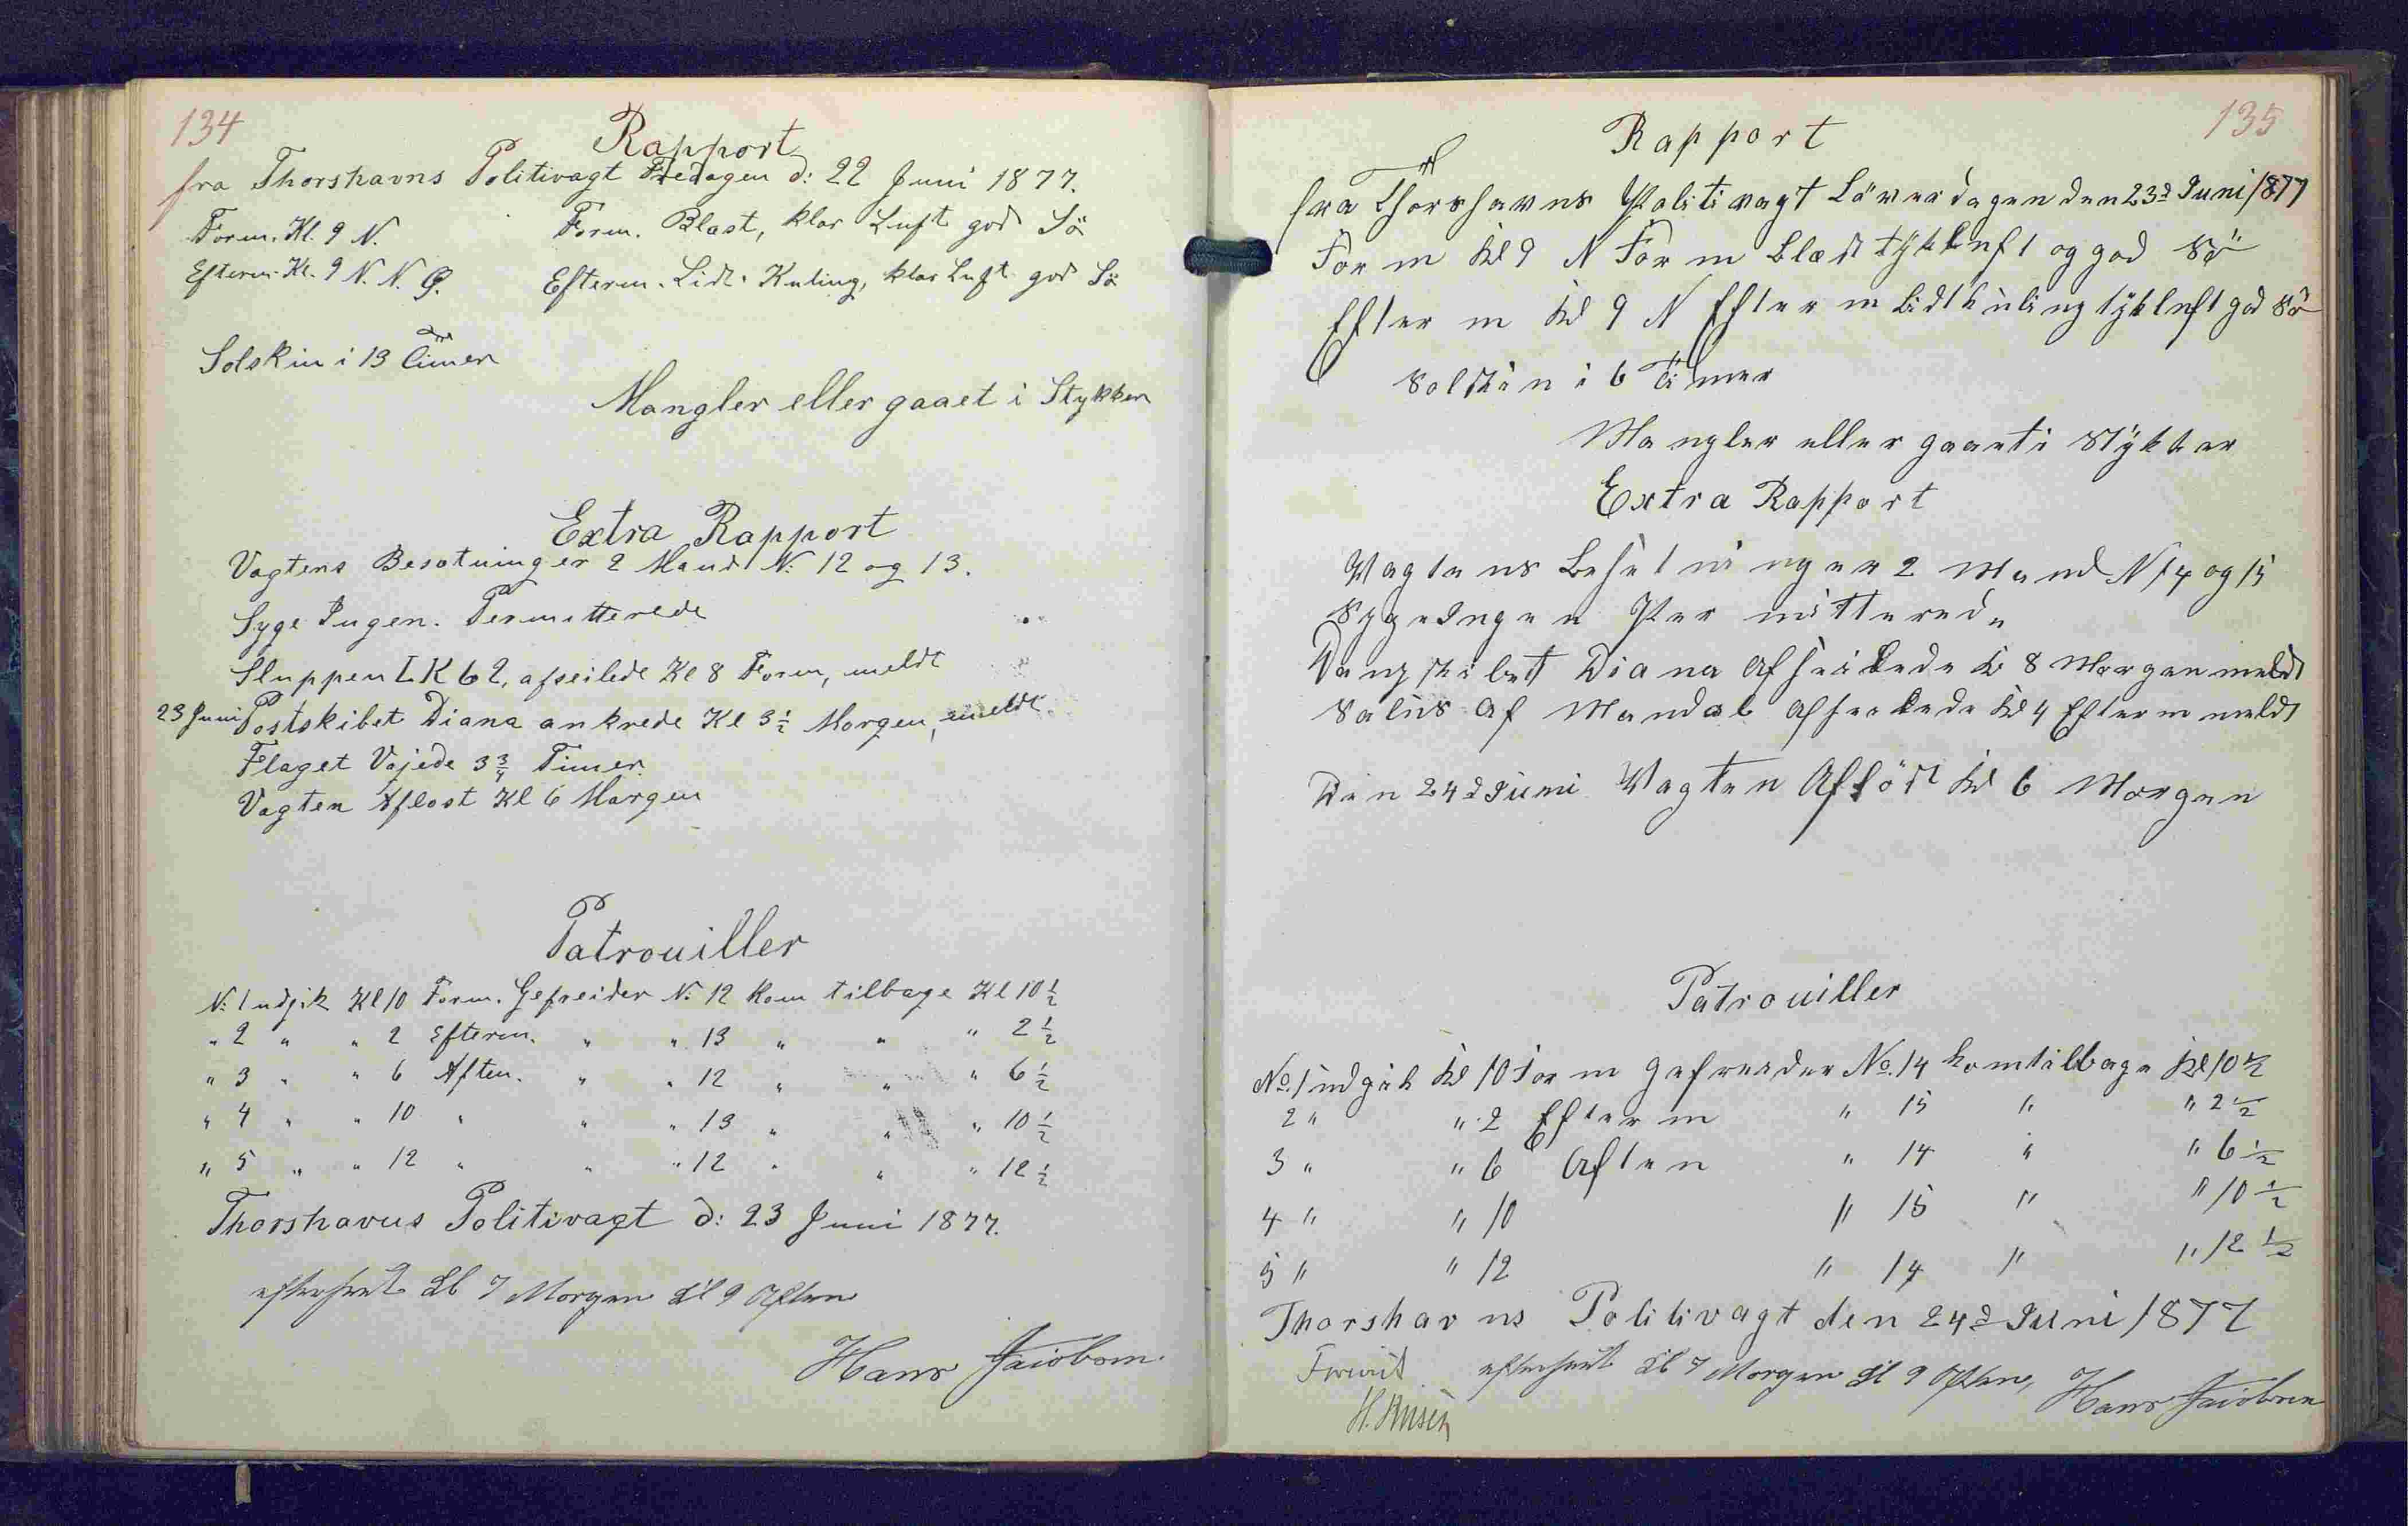 134
Rapport
fra Thorshavns Politivagt Fredagen d: 22 Juni 1877.
Form. Kl. 9 N. Form. Blast, klar Luft god Sö
Efterm. Kl. 9 N. N. Ø. Efterm. Lidt Kuling, klar Luft god Sö
Solskin i 13 Timer
Mangler eller gaaet i Stykker
Extra Rapport
Vagtens Besætninger 2 Mand N: 12 og 13.
Syge Ingen. Permitterede
Sluppen LK 62, afseilede Kl 8 Form, meldt
23 Juni Postskibet Diana ankrede Kl 3½ Morgen, meldt
Flaget Vajede 3¾ Timer.
Vagten Aflöst Kl 6 Morgen
Patrouiller
N: 1 udgik Kl 10 Form. Gefreider N: 12 kom tilbage Kl 10½
" 2 " " 2 Efterm. " " 13 " " " 2½
" 3 " " 6 Aften. " " 12 " " " 6½
" 4 " " 10 " " " 13 " " " 10½
" 5 " " 12 " " " 12 " " " 12½
Thorshavns Politivagt d: 23 Juni 1877.
efterseet Kl 7 Morgen Kl 9 Aften
Hans Jacobsen
135
Rapport
fra Thorshavns Politivagt Löverdagen den 23d Juni 1877
Form Kl 9 N Form Blæst tÿkluft og god Sö
Efterm Kl 9 N Efterm Lidt kuling tÿkluft god Sö
Solskin i 6 Timer
Mangler eller gaaet i Stÿkker
Extra Rapport
Vagtens Besetninger 2 Mand N 14 og 15
Syge Ingen Permitterede
Dampskibet Diana Afseilede Kl 8 Morgen meldt
Salus Af Mandal Afseilede Kl 4 Efterm meldt
Den 24d Juni Vagten Aflöst Kl 6 Morgen
Patrouiller
No. 1 udgik Kl 10 Form Gefreider No. 14 kom tilbage Kl 10½
2 " " 2 Efterm " 15 " " 2½
3 " " 6 Aften " 14 " " 6½
4 " " 10 " 15 " " 10½
5 " " 12 " 14 " " 12½
Thorshavns Politivagt den 24d Juni 1877
efterseet Kl 7 Morgen Kl 9 Aften, Hans Jacobsen